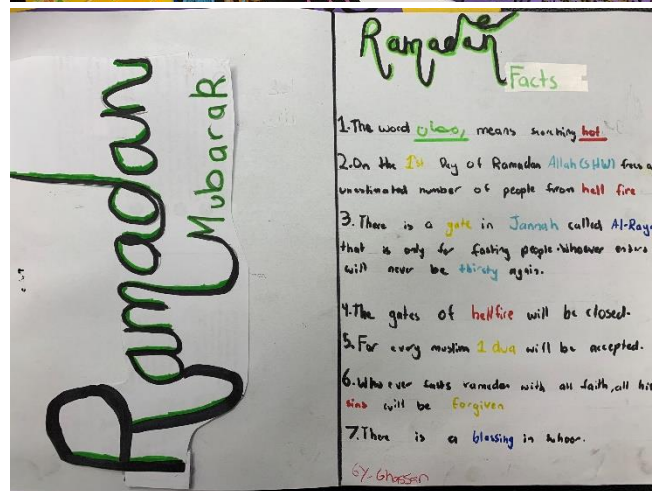 Ramadan
Mubarak
Ramadan
Facts
1. The word رمضان means scorching hot.
2. On the 1st Day of Ramadan Allah (SHW) frees a
unestimated number of people from hell fire
3. There is a gate in Jannah called Al-Raya
that is only for fasting people. Whoever enters
will never be thirsty again.
4. The gates of hellfire will be closed.
5. For every muslim 1 dua will be accepted.
6. Who ever fasts ramadan with all faith, all his
sins will be forgiven
7. There is a blessing in suhoor.
BY- Ghassan